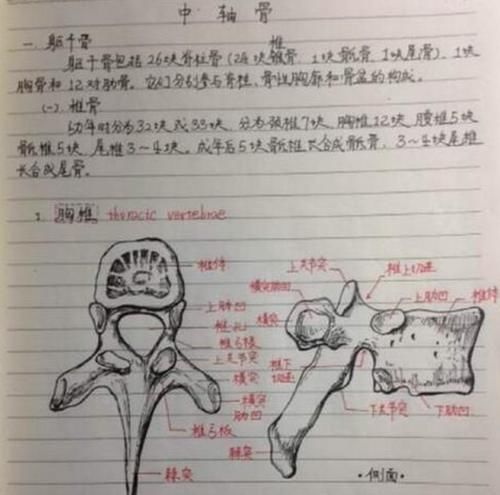 中轴骨
一. 躯干骨
椎
躯干骨包括26块脊柱骨(24块椎骨、1块骶骨、1块尾骨)、1块
胸骨和12对肋骨。它们分别参与脊柱、骨性胸廓和骨盆的构成。
(一). 椎骨
幼年时分为32块或33块、分为颈椎7块、胸椎12块、腰椎5块
骶椎5块、尾椎3~4块。成年后5块骶椎长合成骶骨、3~4块尾椎
长合成尾骨。
1. 胸椎 thoracic vertebrae
椎体
上肋凹
椎孔
椎弓根
上关节突
横突
横突
肋凹
椎弓板
棘突
上关节突
椎上切迹
横突肋凹
上肋凹
椎体
横突
椎下
切迹
下关节突
下肋凹
棘突
·侧面·